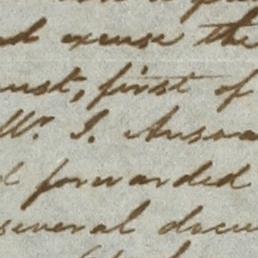 excuse the
ust, first of
Mr. I. Ansoa
forwarded
several docu